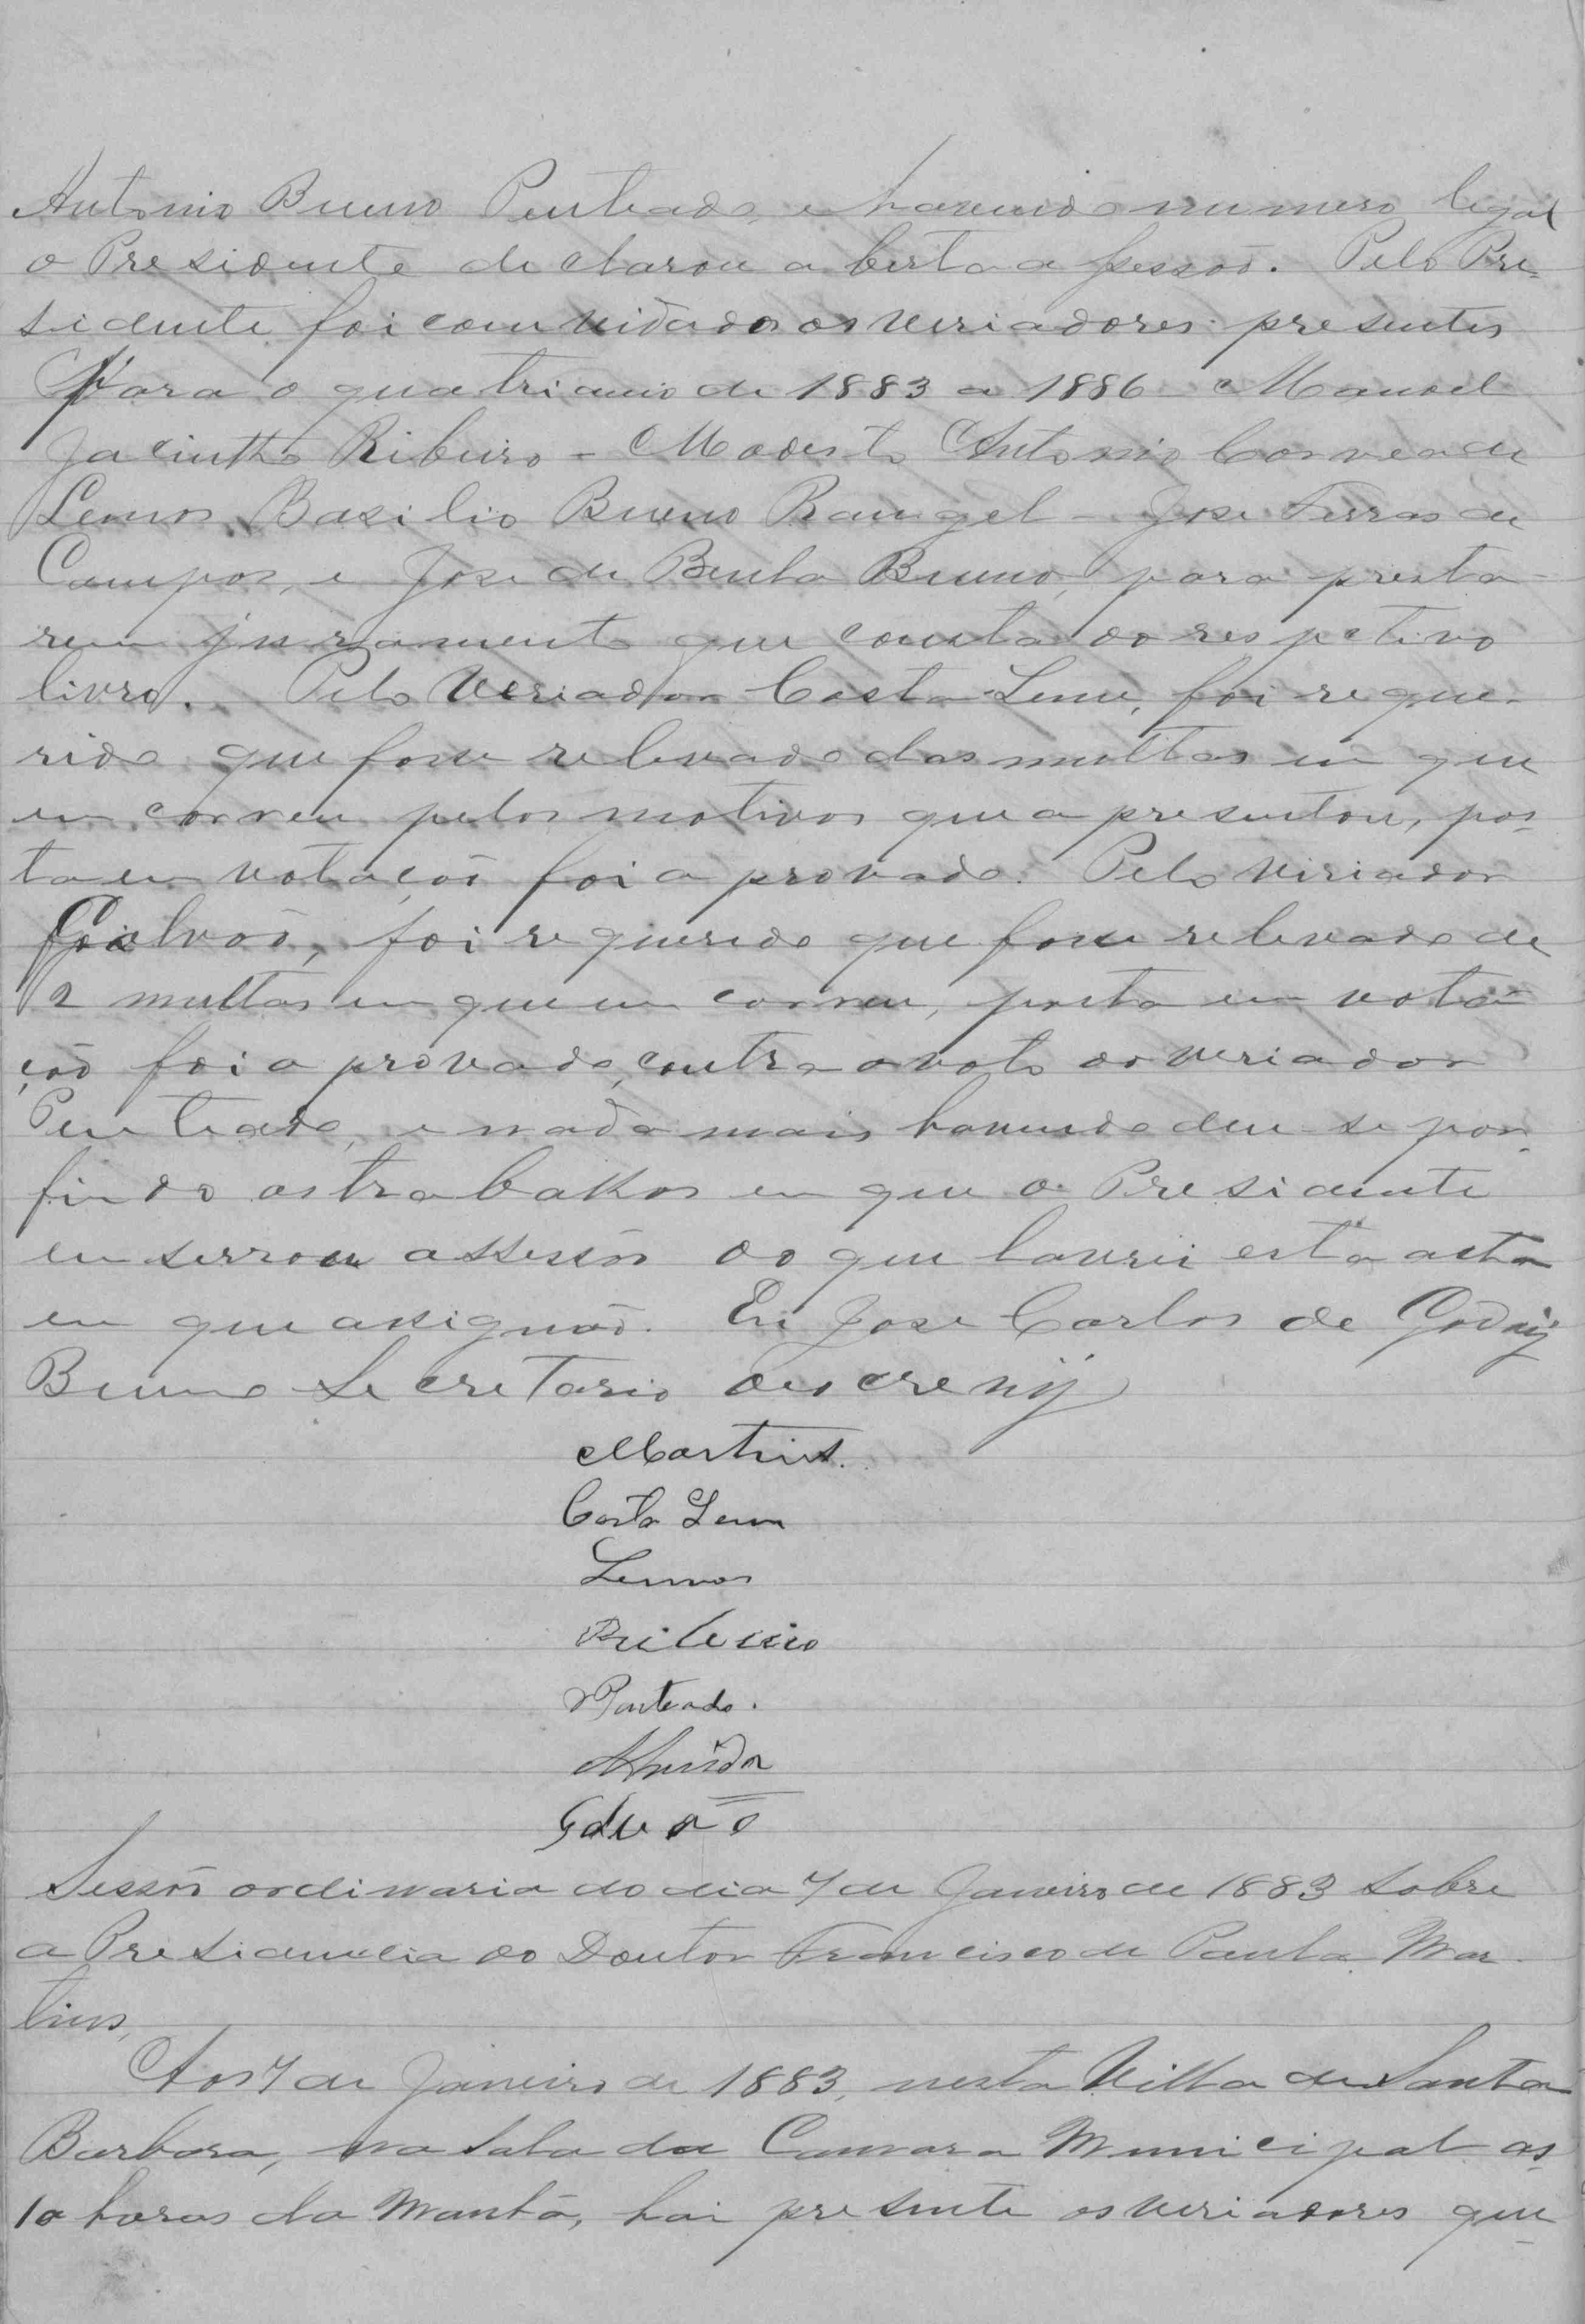 Antonio Bueno Penteado, e havendo numero legal
o Presidente declarou aberta a sessaõ. Pelo Pre-
sidente foi comvidado os veriadores presentes
Para o quatrianio de 1883 a 1886 Manoel
Jacintho Ribeiro - Modesto Antonio Correa de
Lemos Basilio Bueno Rangel - Jose Ferras de
Campos, e Jose de Bueno, para presta-
rem juramento que consta do respetivo
livro. Pelo Veriador Costa Leme, foi reque-
rido que fosse relevado das multas em que
em correu pelos motivos que apresentou, pos-
ta em votaçaõ foi aprovado. Pelo Veriador
Galvaõ, foi requerido que fosse relevado de
2 multas em que em correu, posta em vota-
çaõ foi aprovado, contra o voto do veriador
Penteado, e nada mais havendo deu se por
findo os trabalhos em que o Presidente
enserrou assessaõ do que lavrei esta acta
em que assignaõ. Eu Jose Carlos de Godoÿ
Bueno Secretario o escrevÿ
Martins.
Costa Leme
Lemos
Ribeiro
Penteado.
Almeida
Galvão
Sessaõ ordinaria do dia 7 de Janeiro de 1883 sobre
a Presidencia do Doutor Francisco de Paula Mar-
tins,
Aos 7 de Janeiro de 1883, nesta Villa de Santa
Barbara, na sala da Camara Municipal as
10 horas da Manhã, hai presente os veriadores que